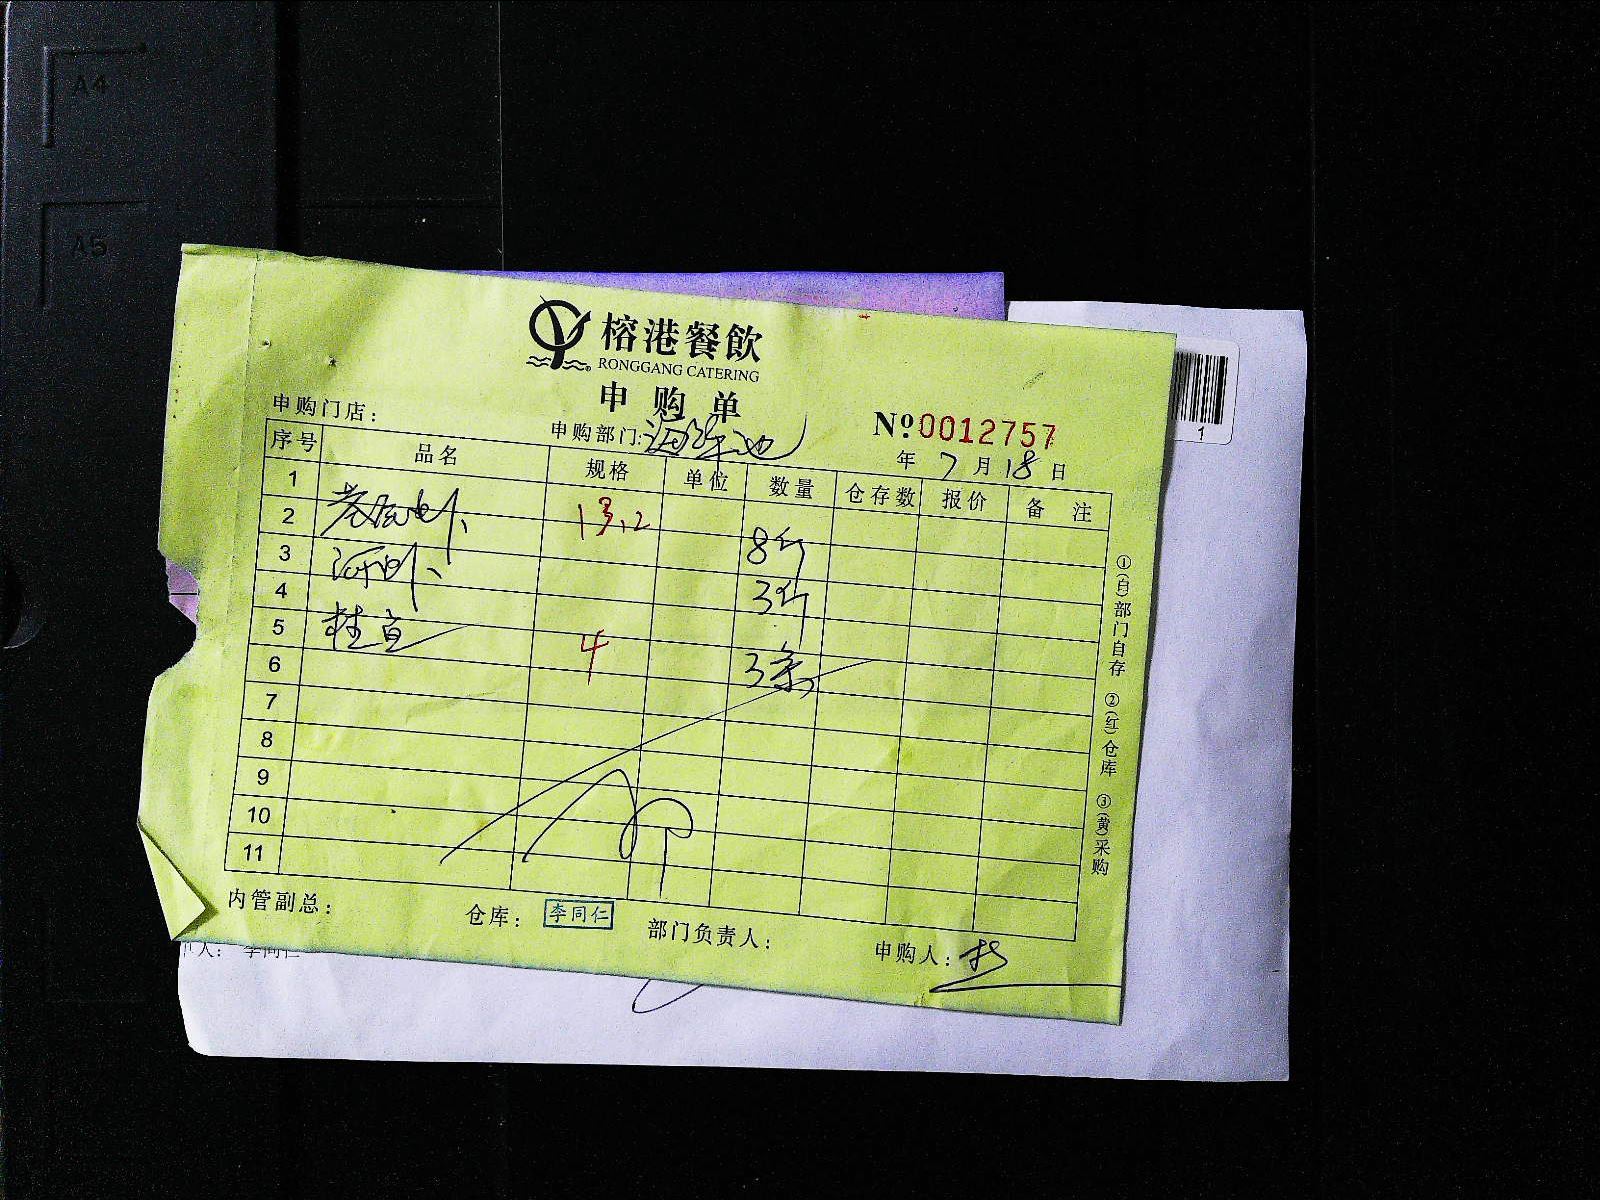 A4
A5
榕港餐飲
RONGGANG CATERING
申购单
申购门店:
申购部门:海鲜池
№0012757
年 7月18日
序号 品名 规格 单位 数量 仓存数 报价 备注
1
2 13.2 8斤
3 河虾 3斤
4
5 桂鱼 4 3条
6
7
8
9
10
11
①(白)部门自存 ②(红)仓库 ③(黄)采购
内管副总: 仓库: 李同仁 部门负责人: 申购人:
人: 李同仁
1